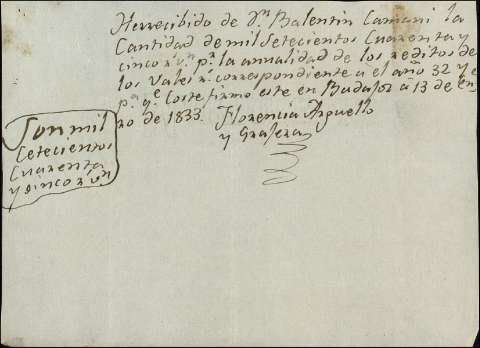 Herrecibido de Dn. Balentin Camani la
Cantidad de mil Setecientos Cuarenta y
cinco rs. vn. pr. la annalidad de los reditos de
los Vales rs. correspondiente a el año 32 y
pa. qe. Coste firmo este en Badajoz á 13 de En
ro de 1833. Florencia Arguello
y Grajera
Son mil
Cetecientos
Cuarenta
y cinco rs. vn.